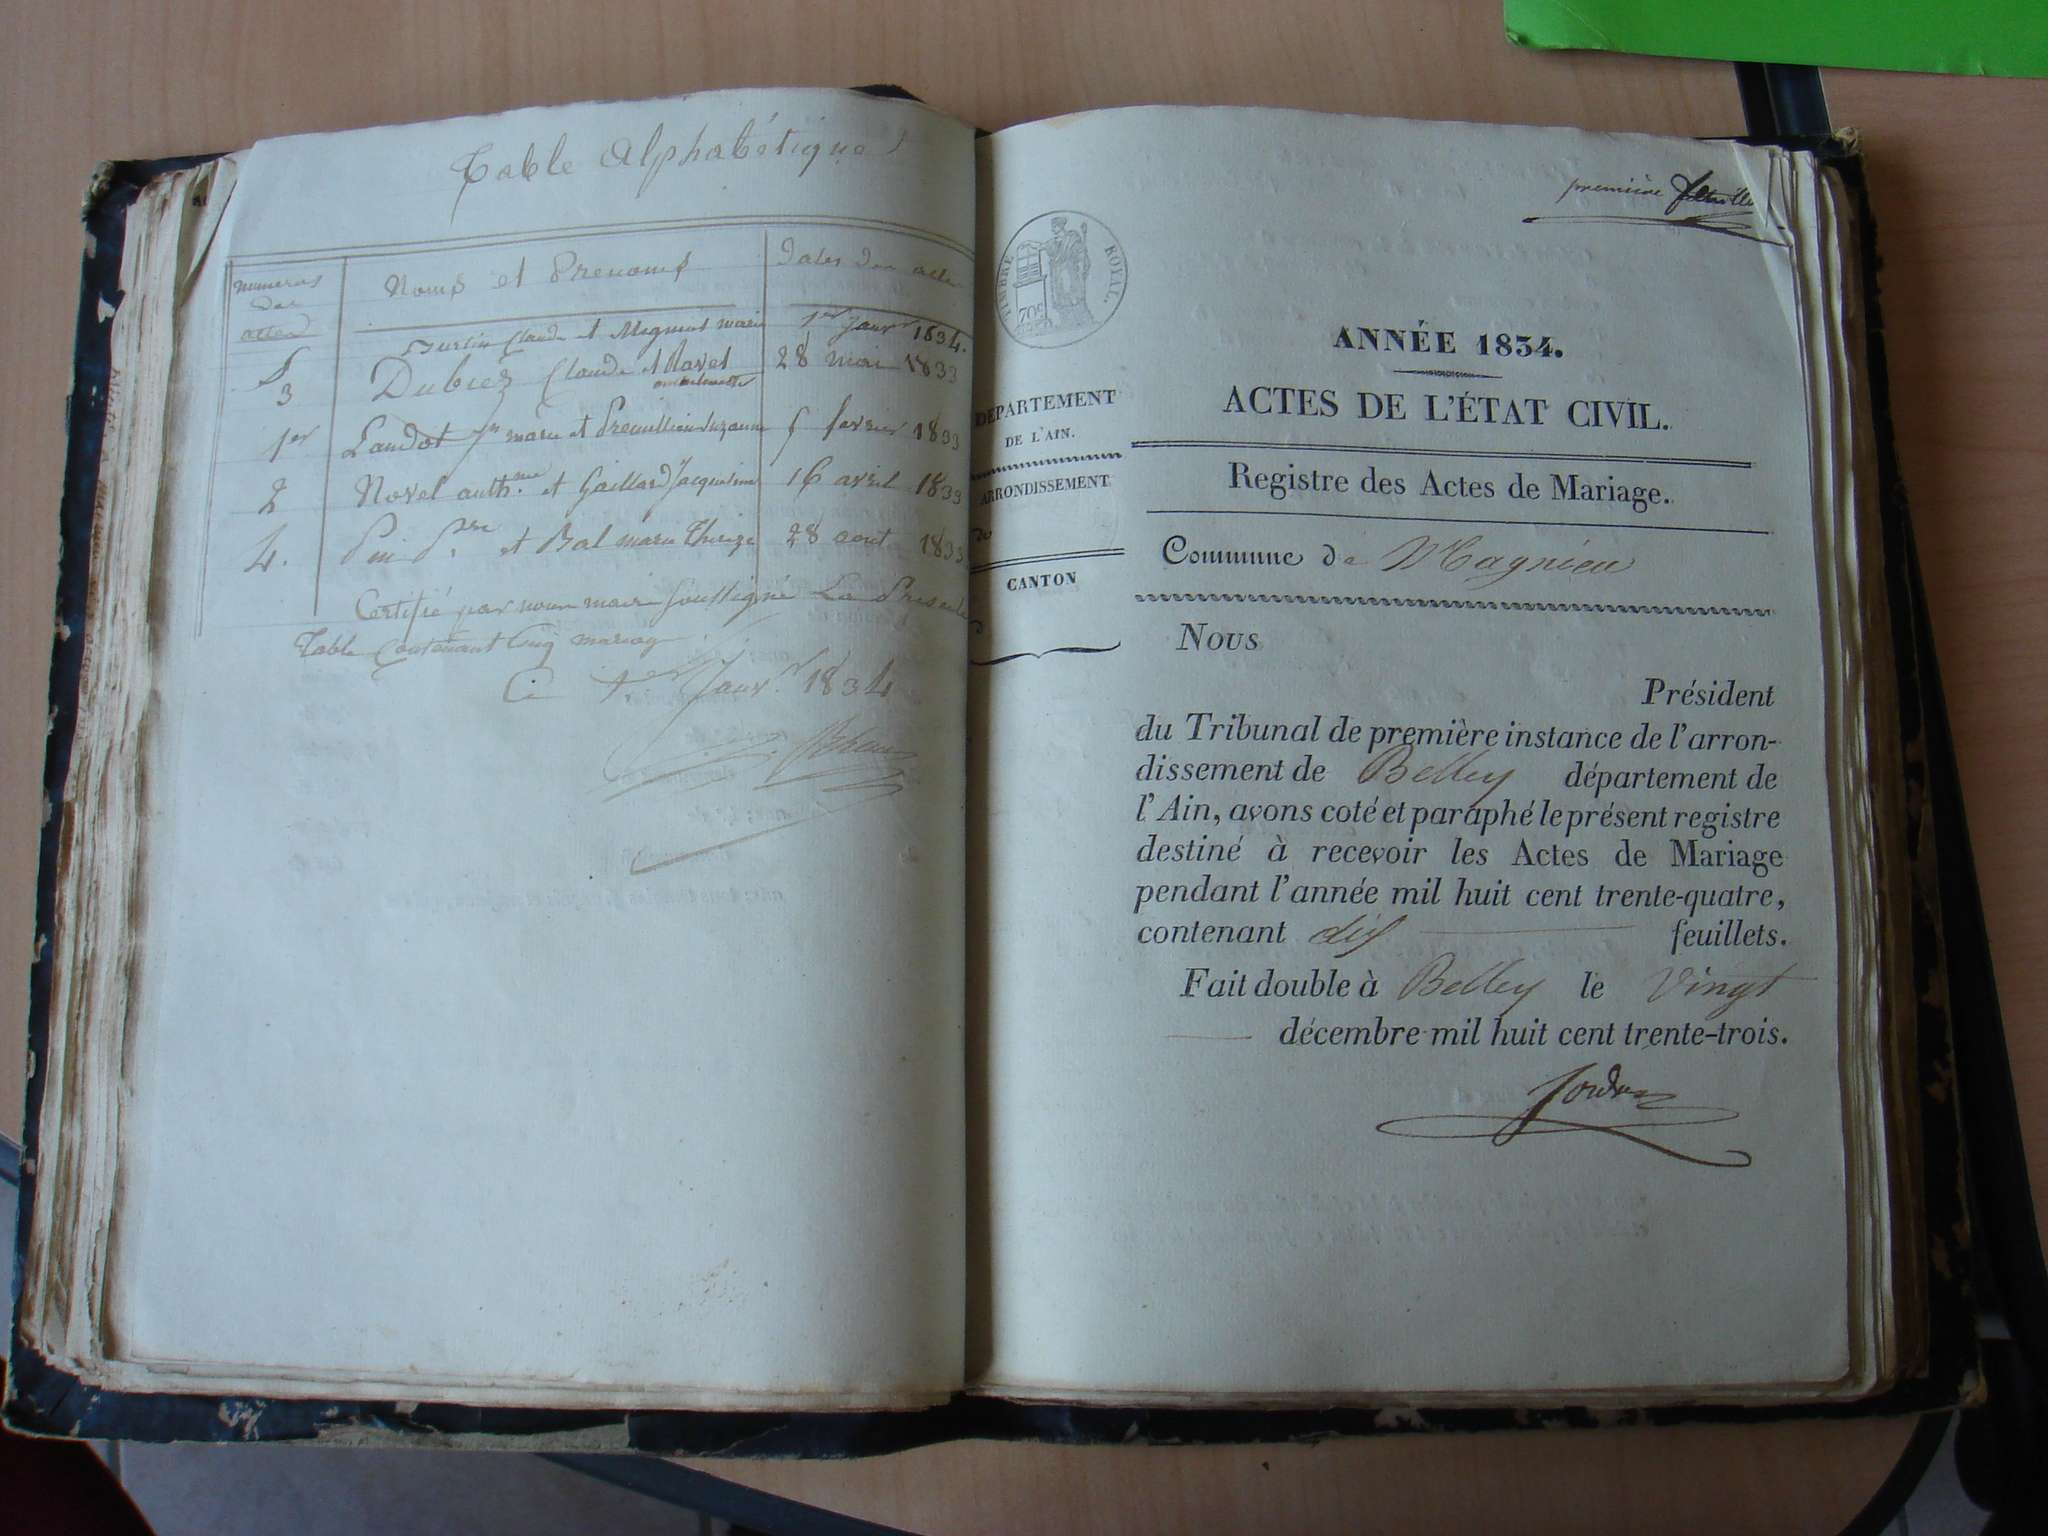 Table Alphabétique
numeros
des
actes
Noms et Prenoms
Dates des actes
Burlin Claude et Mognient marie 1er Janvr 1834.
5
3 Dubiez Claude et Ravet 28 mai 1833
1er Laudot Jn marie et Suzanne 5 fevrier 1833
2 Novel anthme et Gaillard Jacqueline 16 avril 1833
4. Pin Pre et Bal marie Therese 28 aout 1833.
Certifié par nous maire soussigné La Presente
Table Contenant Cinq mariages
Ce 1er Janvr 1834
première feuillet
TIMBRE ROYAL.
70c
ANNÉE 1834.
ACTES DE L'ÉTAT CIVIL.
DÉPARTEMENT
DE L'AIN.
ARRONDISSEMENT
de
CANTON
Registre des Actes de Mariage.
Commune de Magnieu
Nous
Président
du Tribunal de première instance de l'arron-
dissement de Belley département de
l'Ain, avons coté et paraphé le présent registre
destiné à recevoir les Actes de Mariage
pendant l'année mil huit cent trente-quatre,
contenant dix feuillets.
Fait double à Belley le Vingt
décembre mil huit cent trente-trois.